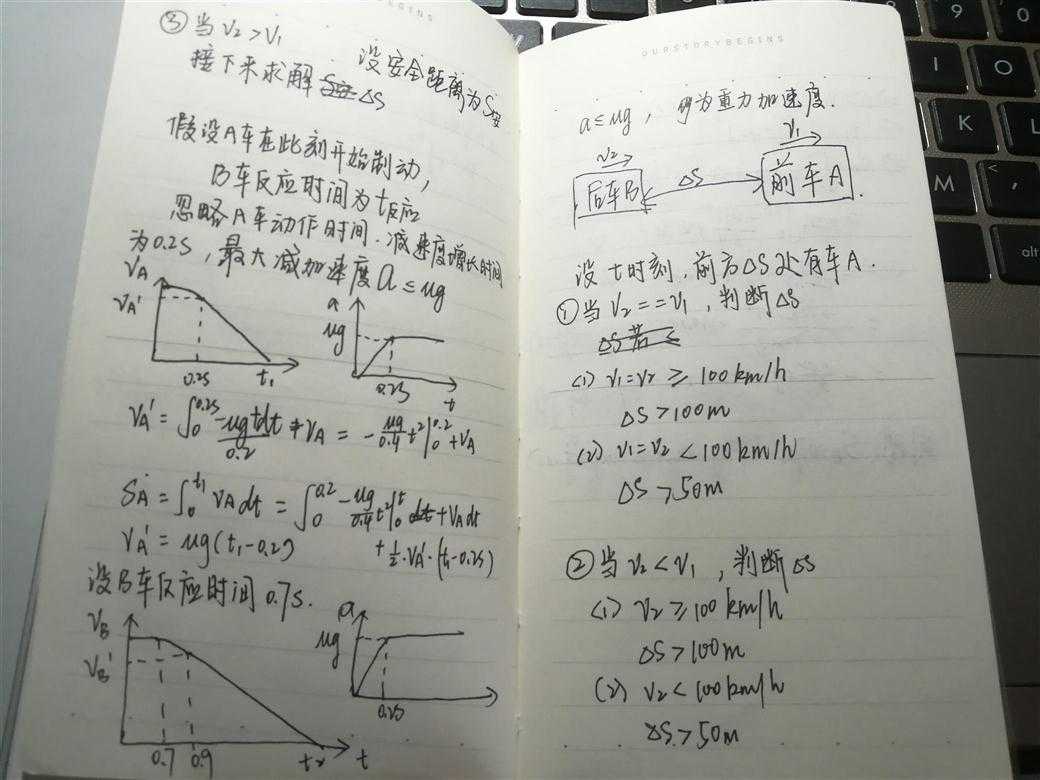 ③当 V₂>V₁ 设安全距离为S安
接下来求解 ΔS
假设A车在此刻开始制动,
B车反应时间为t反应
忽略A车动作时间.减速度增长时间
为0.2s,最大减加速度 a≤ug
VA
VA'
0.2s
t₁
a
ug
0.2s
t
VA' = ∫₀^0.2s -ugtdt/0.2 + VA = -ug/0.4 t²|₀^0.2 + VA
SA = ∫₀^t₁ VA dt = ∫₀^0.2 -ug/0.4 t²|₀^t + VA dt
VA' = ug(t₁-0.2) + ½·VA'·(t₁-0.2s)
设B车反应时间 0.7s.
VB
VB'
0.7
0.9
t₂
t
a
ug
0.2s
OURSTORYBEGINS
a≤ug, g为重力加速度.
V₂
V₁
后车B
ΔS
前车A
设 t时刻,前方ΔS处有车A.
①当 V₂==V₁,判断ΔS
(1) V₁=V₂ ≥ 100km/h
ΔS>100m
(2) V₁=V₂ <100km/h
ΔS>50m
②当 V₂<V₁,判断ΔS
(1) V₂≥100km/h
ΔS>100m
(2) V₂<100km/h
ΔS>50m
9
0
I
O
K
L
M
<
,
alt